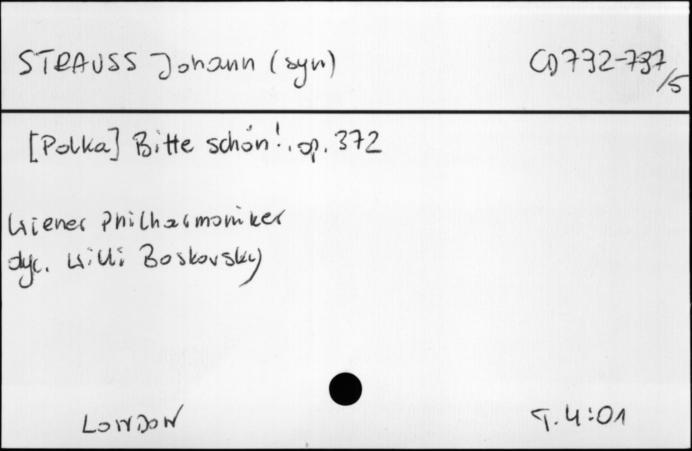 STRAUSS Johann (syn) CD 732-737
/5
[Polka] Bitte schön!, op. 372
Wiener Philharmoniker
dyr. Willi Boskovsky
LONDON T. 4:01